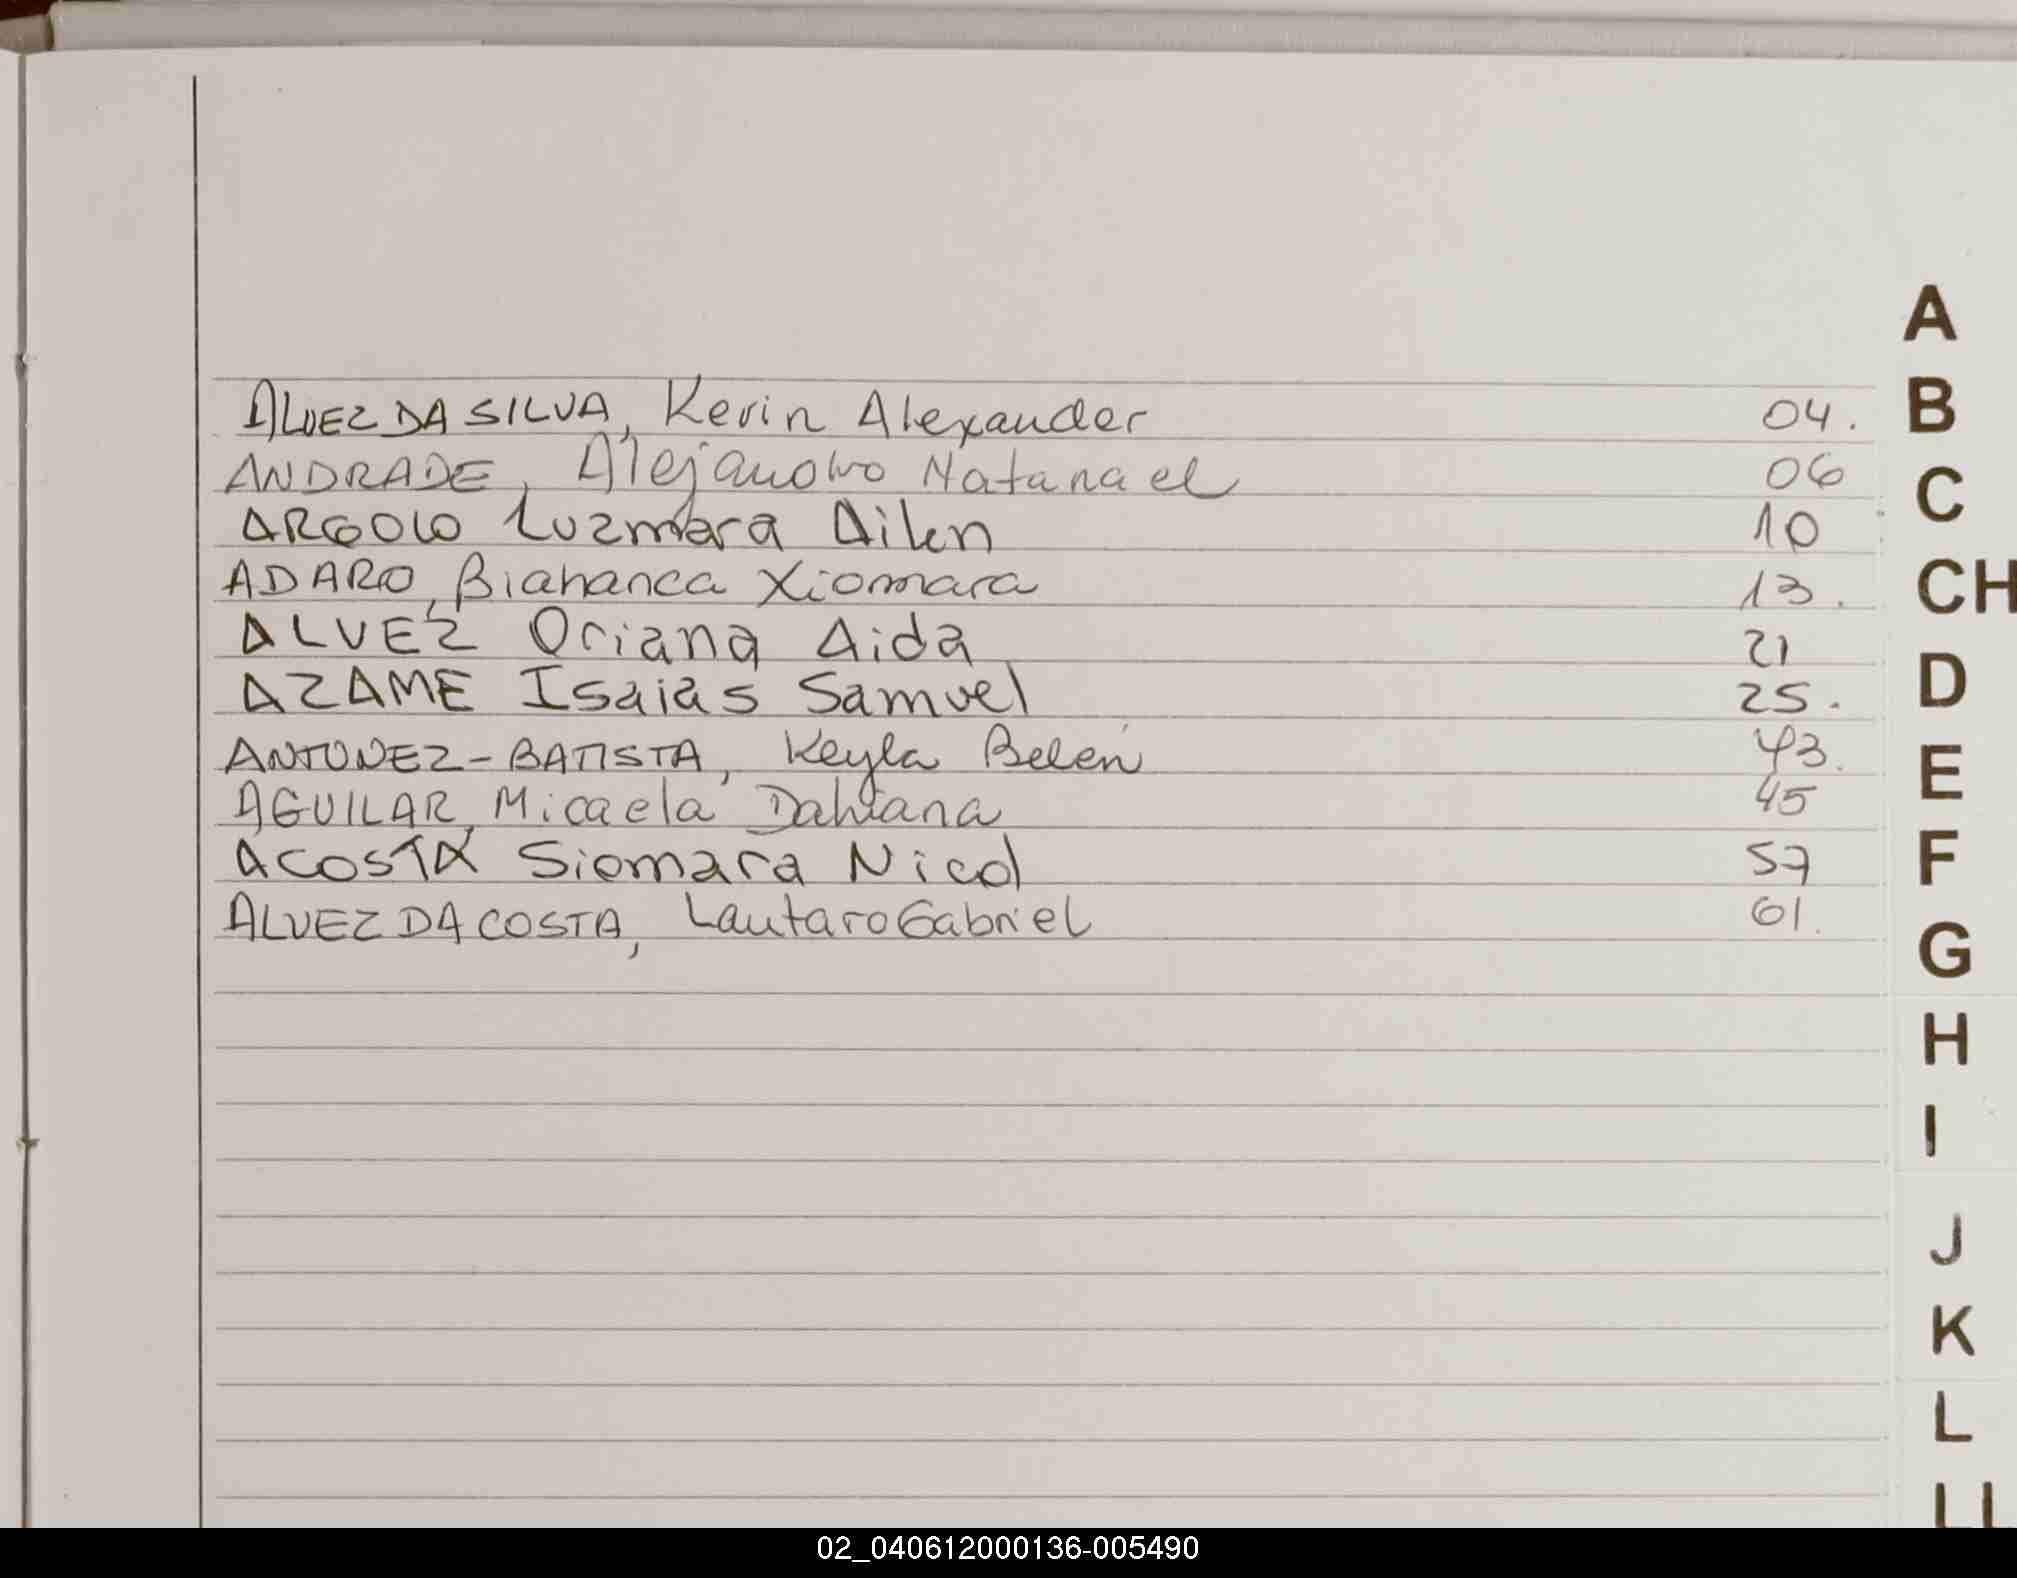 ALVEZ DA SILVA, Kevin Alexander 04.
ANDRADE, Alejandro Natanael 06
ARGOLO Luzmara Ailen 10
ADARO, Biahanca Xiomara 13.
ALVEZ Oriana Aida 21
AZAME Isaias Samuel 25.
ANTUNEZ-BATISTA, Keyla Belén 43.
AGUILAR, Micaela Dahiana 45
ACOSTA Siomara Nicol 57
ALVEZ DA COSTA, Lautaro Gabriel 61.
A
B
C
CH
D
E
F
G
H
I
J
K
L
LL
02_040612000136-005490